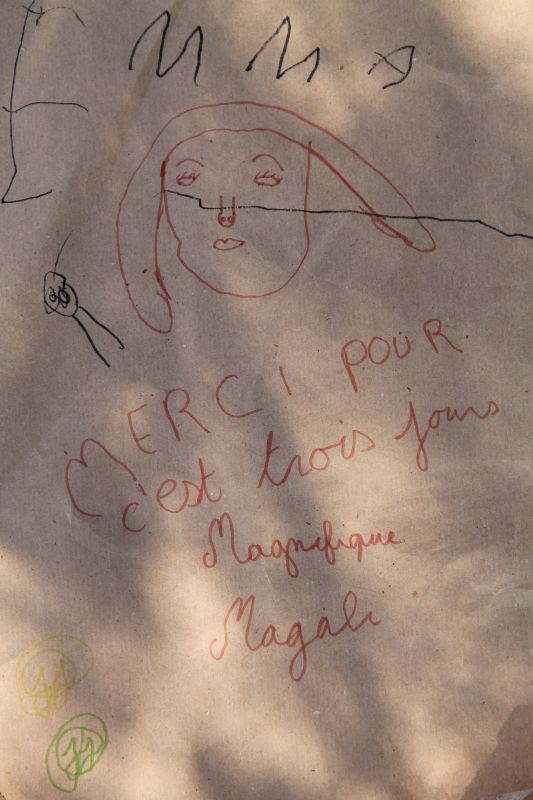 Emma
MERCI POUR
c'est trois jours
Magnifique
Magali